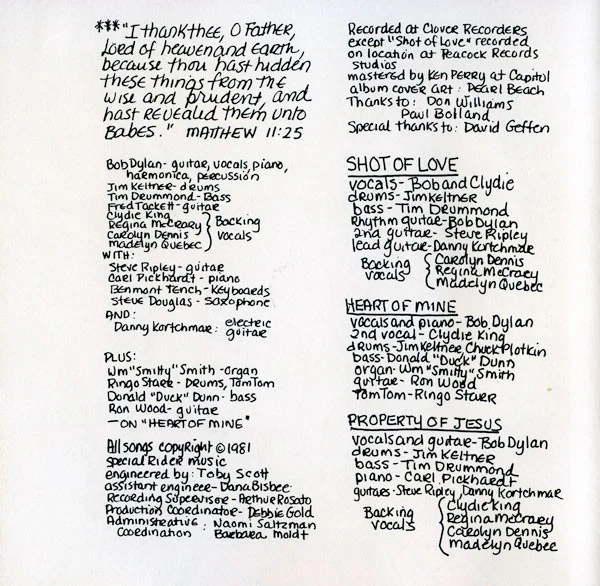 ***"I thank thee, O Father,
Lord of heaven and earth,
because thou hast hidden
these things from the
wise and prudent, and
hast revealed them unto
Babes." MATTHEW 11:25
Bob Dylan - guitar, vocals, piano,
harmonica, percussion
Jim Keltner - drums
Tim Drummond - Bass
Fred Tackett - guitar
Clydie King
Regina McCrary
Carolyn Dennis
Madelyn Quebec
Backing
vocals
WITH:
Steve Ripley - guitar
Carl Pickhardt - piano
Benmont Tench - Keyboards
Steve Douglas - saxophone
AND:
Danny Kortchmar: electric
guitar
PLUS:
Wm "Smitty" Smith - organ
Ringo Starr - Drums, TomTom
Donald "Duck" Dunn - bass
Ron Wood - guitar
— ON "HEART OF MINE"
All songs copyright © 1981
Special Rider Music
engineered by: Toby Scott
assistant engineer - Dana Bisbee
Recording Supervisor - Arthur Rosato
Production Coordinator - Debbie Gold
Administrative : Naomi Saltzman
Coordination Barbara Moldt
Recorded at Clover Recorders
except "Shot of Love" recorded
on location at Peacock Records
studios
mastered by Ken Perry at Capitol
album cover art : Pearl Beach
Thanks to: Don Williams
Paul Bolland
Special thanks to: David Geffen
SHOT OF LOVE
vocals - Bob and Clydie
drums - Jim Keltner
bass - Tim Drummond
Rhythm guitar - Bob Dylan
2nd guitar - Steve Ripley
lead guitar - Danny Kortchmar
Backing
vocals
Carolyn Dennis
Regina McCrary
Madelyn Quebec
HEART OF MINE
vocals and piano - Bob Dylan
2nd vocal - Clydie King
drums - Jim Keltner, Chuck Plotkin
bass - Donald "Duck" Dunn
organ - Wm "Smitty" Smith
guitar - Ron Wood
TomTom - Ringo Starr
PROPERTY OF JESUS
vocals and guitar - Bob Dylan
drums - Jim Keltner
bass - Tim Drummond
piano - Carl Pickhardt
guitars - Steve Ripley, Danny Kortchmar
Backing
vocals
Clydie King
Regina McCrary
Carolyn Dennis
Madelyn Quebec